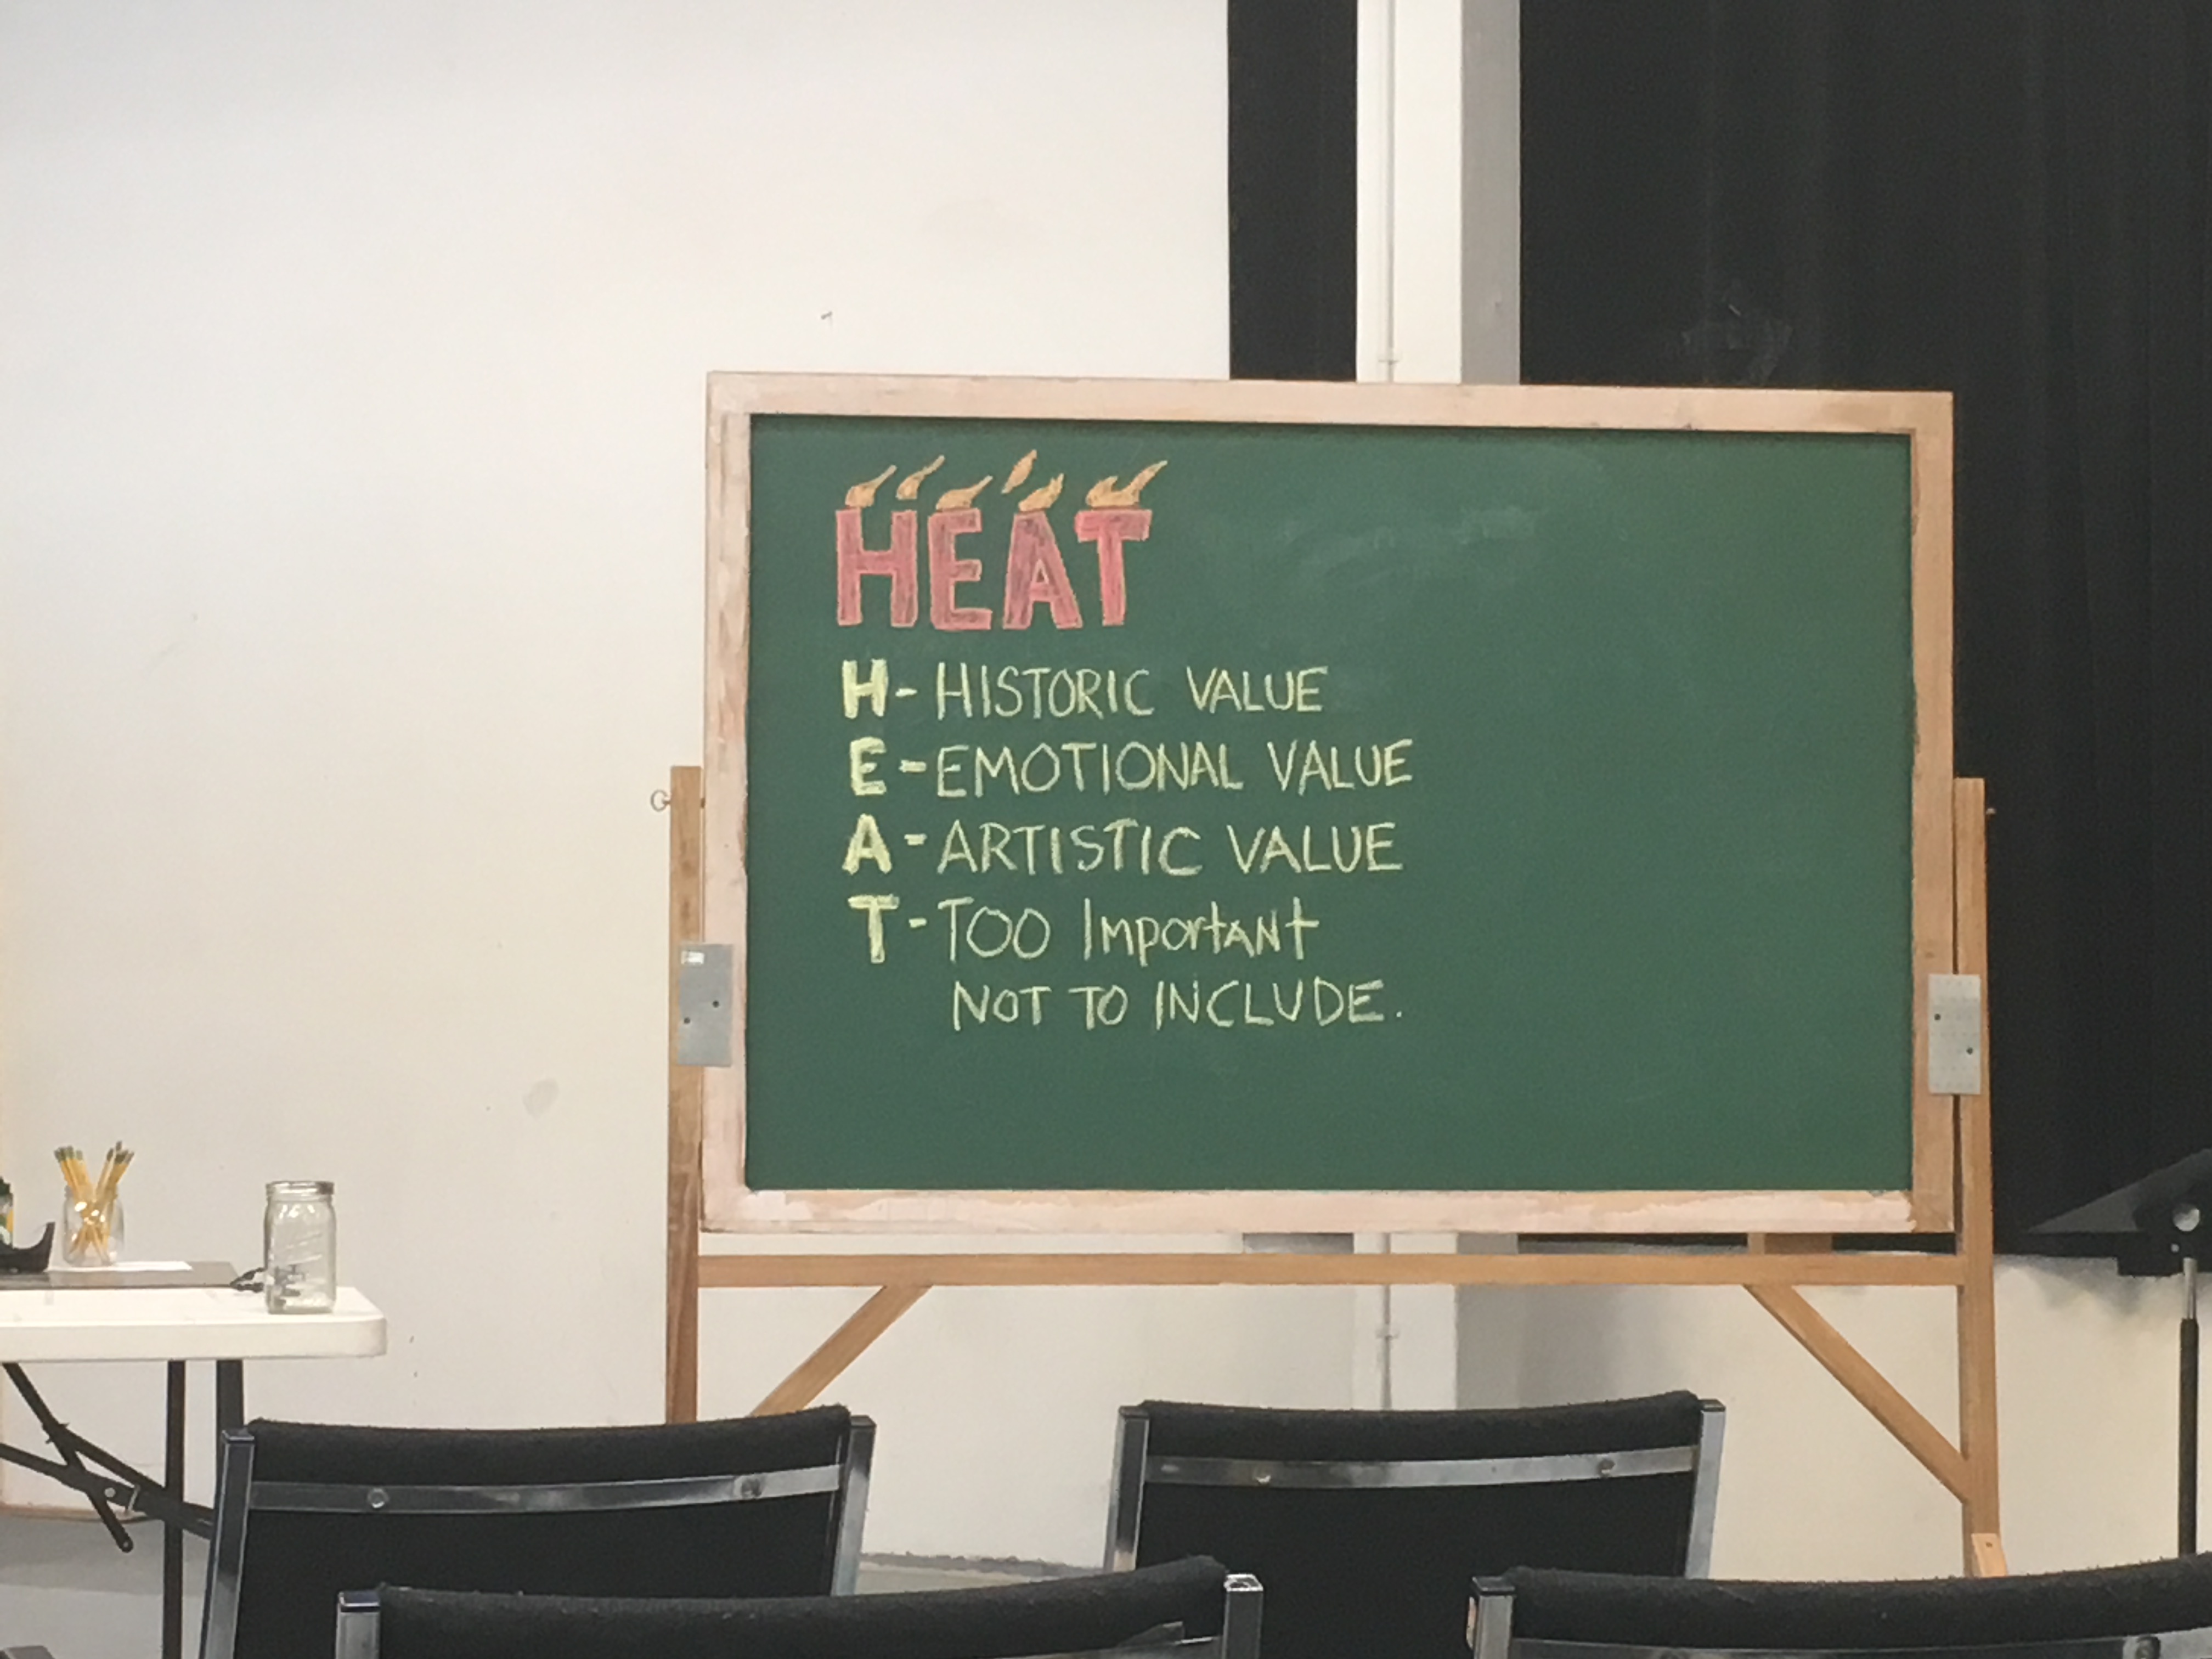 HEAT
H- HISTORIC VALUE
E- EMOTIONAL VALUE
A- ARTISTIC VALUE
T- TOO Important
NOT TO INCLUDE.